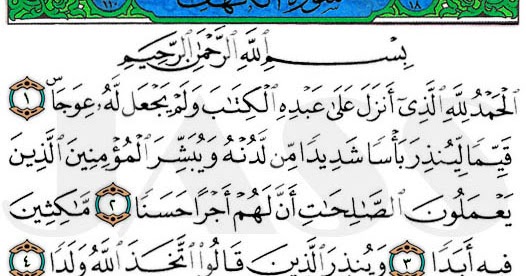 سورة الكهف ١٨ ١١٠
بِسْمِ ٱللَّهِ ٱلرَّحْمَٰنِ ٱلرَّحِيمِ
ٱلْحَمْدُ لِلَّهِ ٱلَّذِىٓ أَنزَلَ عَلَىٰ عَبْدِهِ ٱلْكِتَٰبَ وَلَمْ يَجْعَل لَّهُۥ عِوَجَاۜ ١
قَيِّمًا لِّيُنذِرَ بَأْسًا شَدِيدًا مِّن لَّدُنْهُ وَيُبَشِّرَ ٱلْمُؤْمِنِينَ ٱلَّذِينَ
يَعْمَلُونَ ٱلصَّٰلِحَٰتِ أَنَّ لَهُمْ أَجْرًا حَسَنًا ٢ مَّٰكِثِينَ
فِيهِ أَبَدًا ٣ وَيُنذِرَ ٱلَّذِينَ قَالُوا۟ ٱتَّخَذَ ٱللَّهُ وَلَدًا ٤
JASS